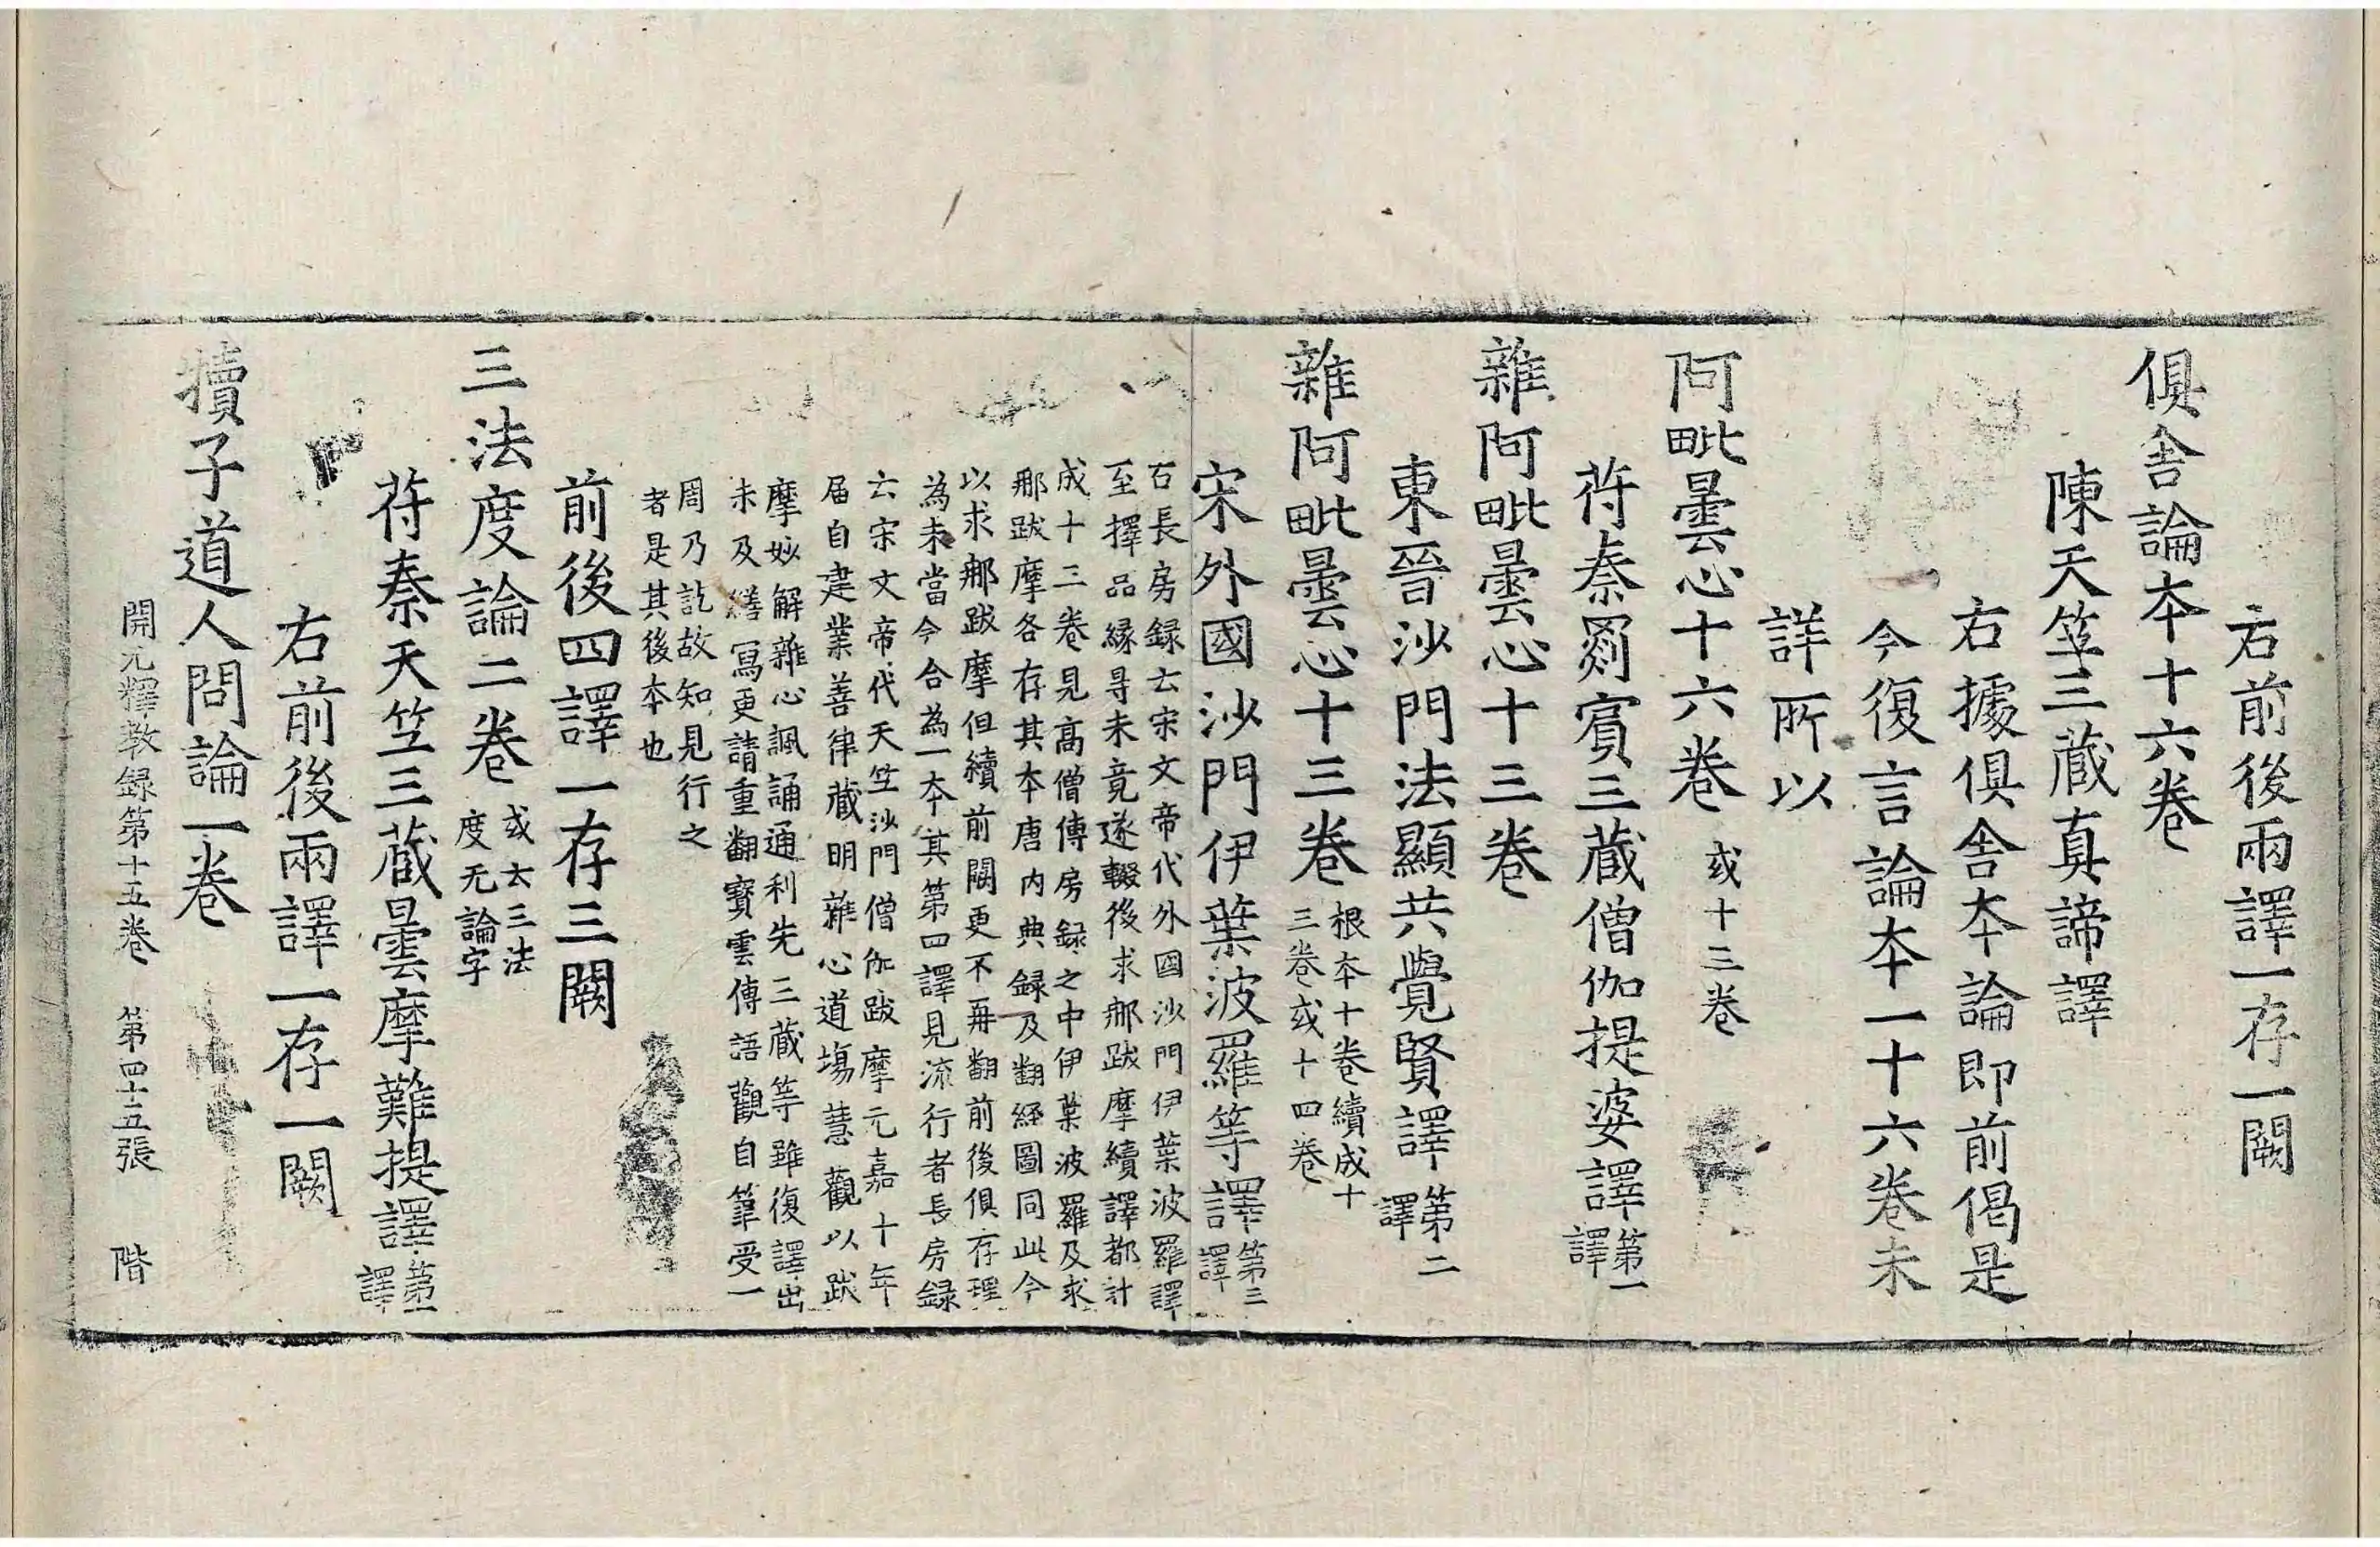 右前後兩譯一存一闕
俱舍論本十六卷
陳天竺三藏真諦譯
右據俱舍本論即前偈是
今復言論本一十六卷未
詳所以
阿毗曇心十六卷 或十三卷
苻秦罽賓三藏僧伽提婆譯 第一
譯
雜阿毗曇心十三卷
東晉沙門法顯共覺賢譯 第二
譯
雜阿毗曇心十三卷 根本十卷續成十
三卷或十四卷
宋外國沙門伊葉波羅等譯 第三
譯
右長房録云宋文帝代外國沙門伊葉波羅譯
至擇品緣尋未竟遂輟後求那跋摩續譯都計
成十三卷見高僧傳房録之中伊葉波羅及求
那跋摩各存其本唐内典録及翻經圖同此今
以求那跋摩但續前闕更不再翻前後俱存理
為未當今合為一本其第四譯見流行者長房録
云宋文帝代天竺沙門僧伽跋摩元嘉十年
届自建業善律藏明雜心道場慧觀以跋
摩妙解雜心諷誦通利先三藏等雖復譯出
未及繕寫更請重翻寶雲傳語觀自筆受一
周乃訖故知見行之
者是其後本也
前後四譯一存三闕
三法度論二卷 或云三法
度无論字
苻秦天竺三藏曇摩難提譯 第一
譯
右前後兩譯一存一闕
犢子道人問論一卷
開元釋教録第十五卷 第四十五張 階